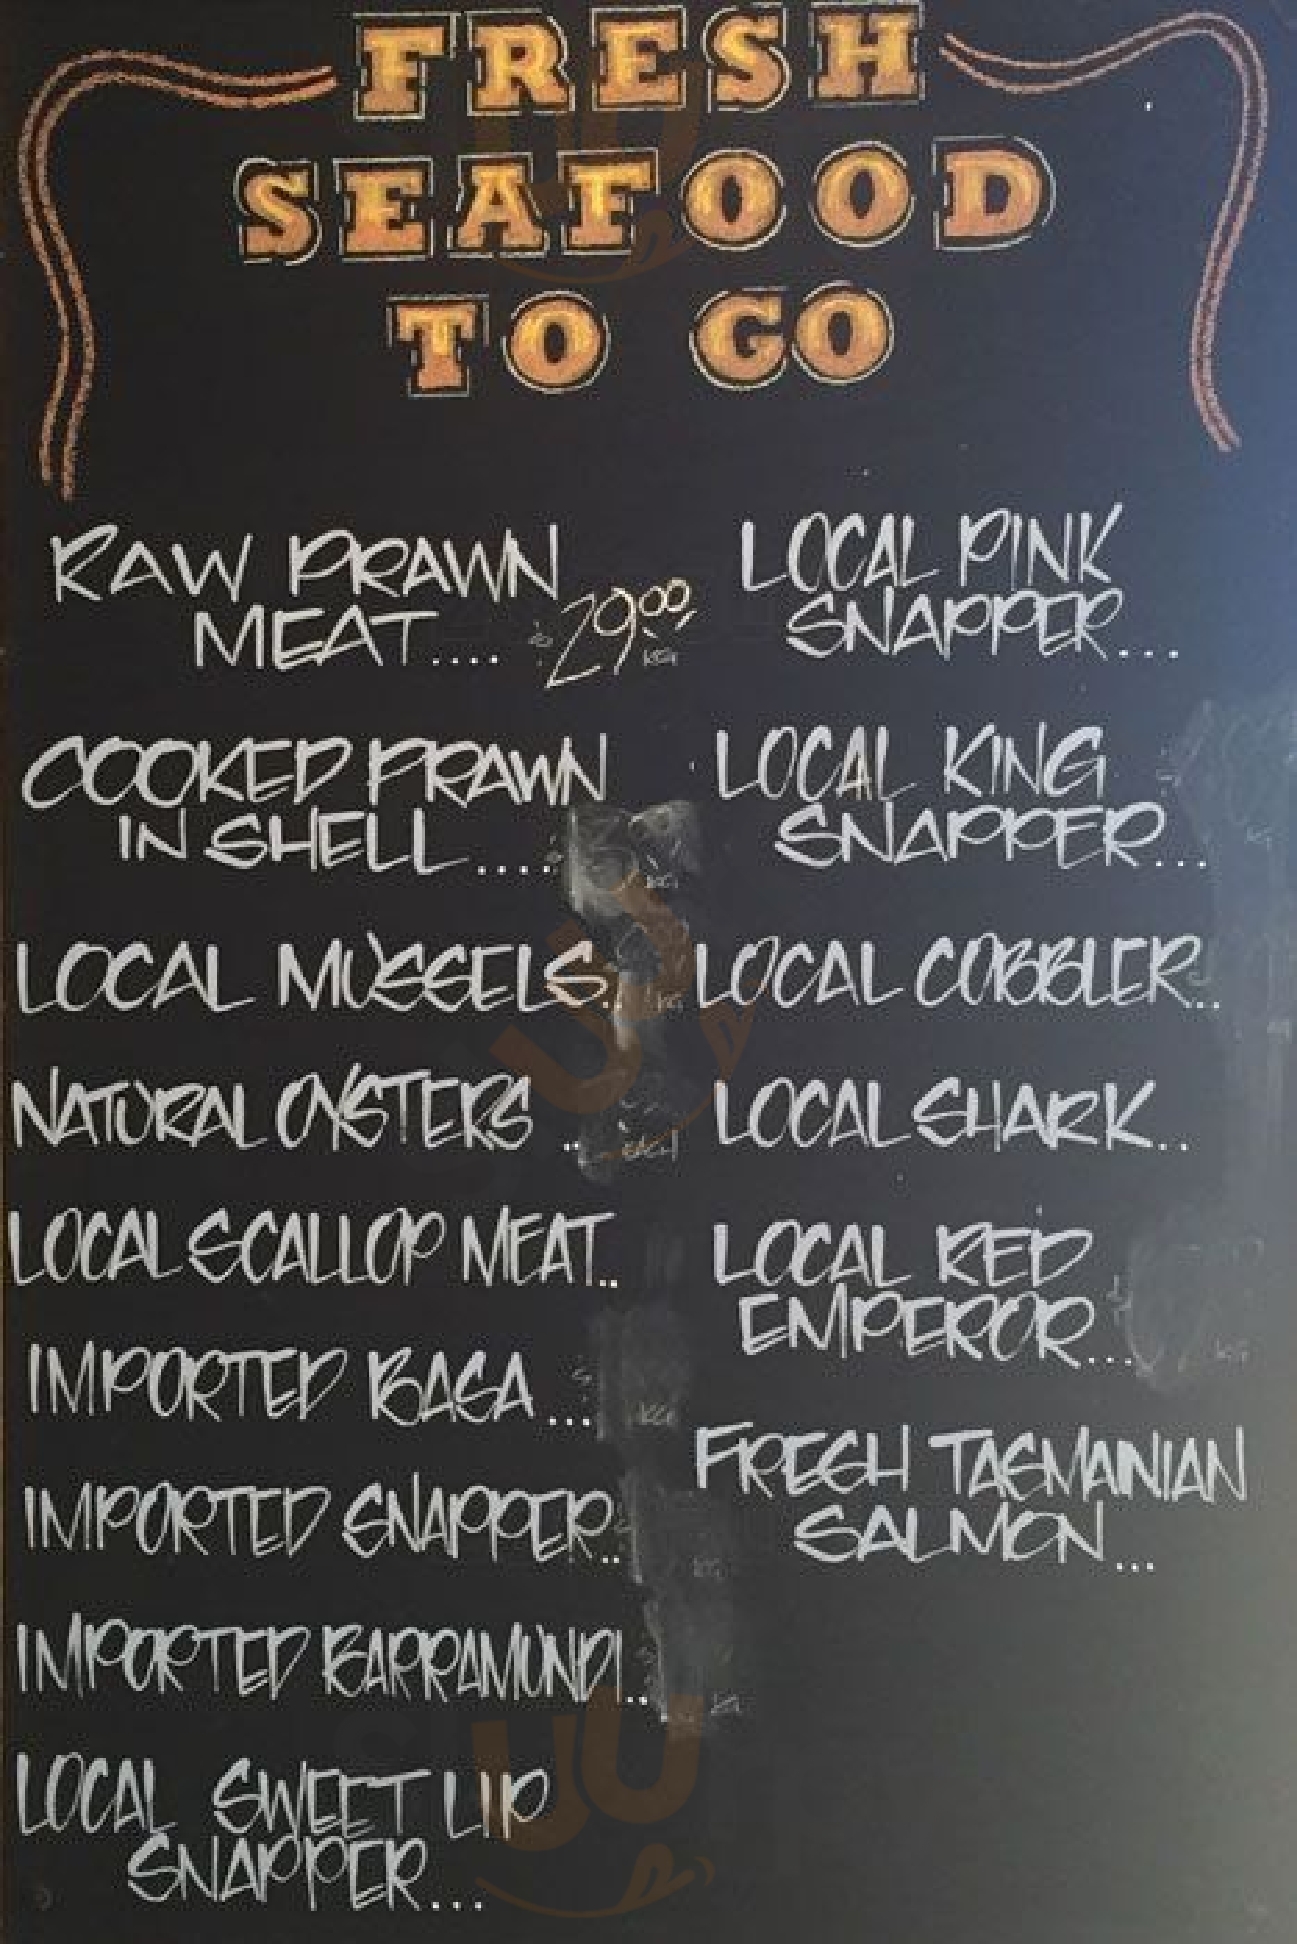 FRESH
SEAFOOD
TO GO
RAW PRAWN
MEAT.... $29.00 KG
COOKED PRAWN
IN SHELL.... KG
LOCAL MUSSELS.. KG
NATURAL OYSTERS .. EACH
LOCAL SCALLOP MEAT..
IMPORTED BASA ... KG
IMPORTED SNAPPER.. KG
IMPORTED BARRAMUNDI.. KG
LOCAL SWEET LIP
SNAPPER...
LOCAL PINK
SNAPPER...
LOCAL KING
SNAPPER... KG
LOCAL COBBLER..
LOCAL SHARK..
LOCAL RED
EMPEROR... KG
FRESH TASMANIAN
SALMON...